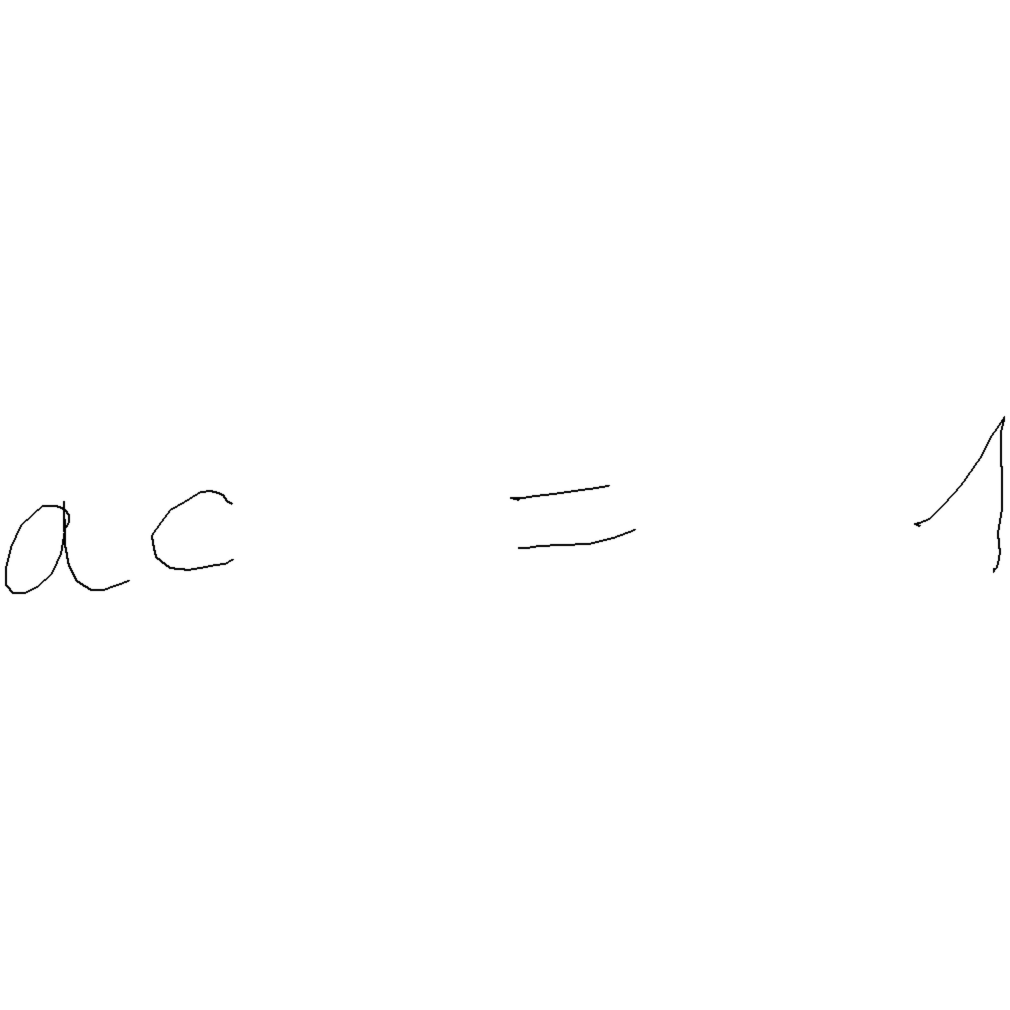 ac = 1